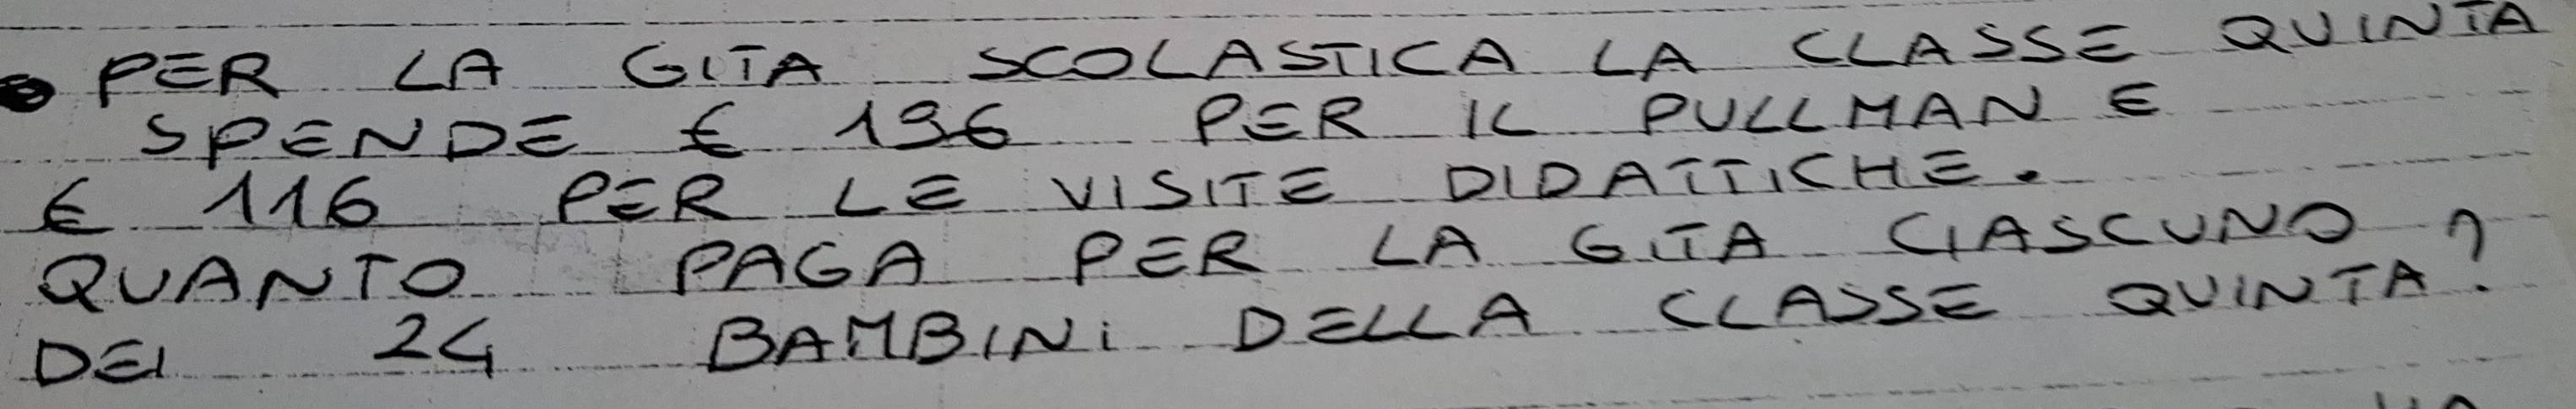 PER LA GITA SCOLASTICA LA CLASSE QUINTA
SPENDE € 196 PER IL PULLMAN E
€ 116 PER LE VISITE DIDATTICHE.
QUANTO PAGA PER LA GITA CIASCUNO
DEI 24 BAMBINI DELLA CLASSE QUINTA?